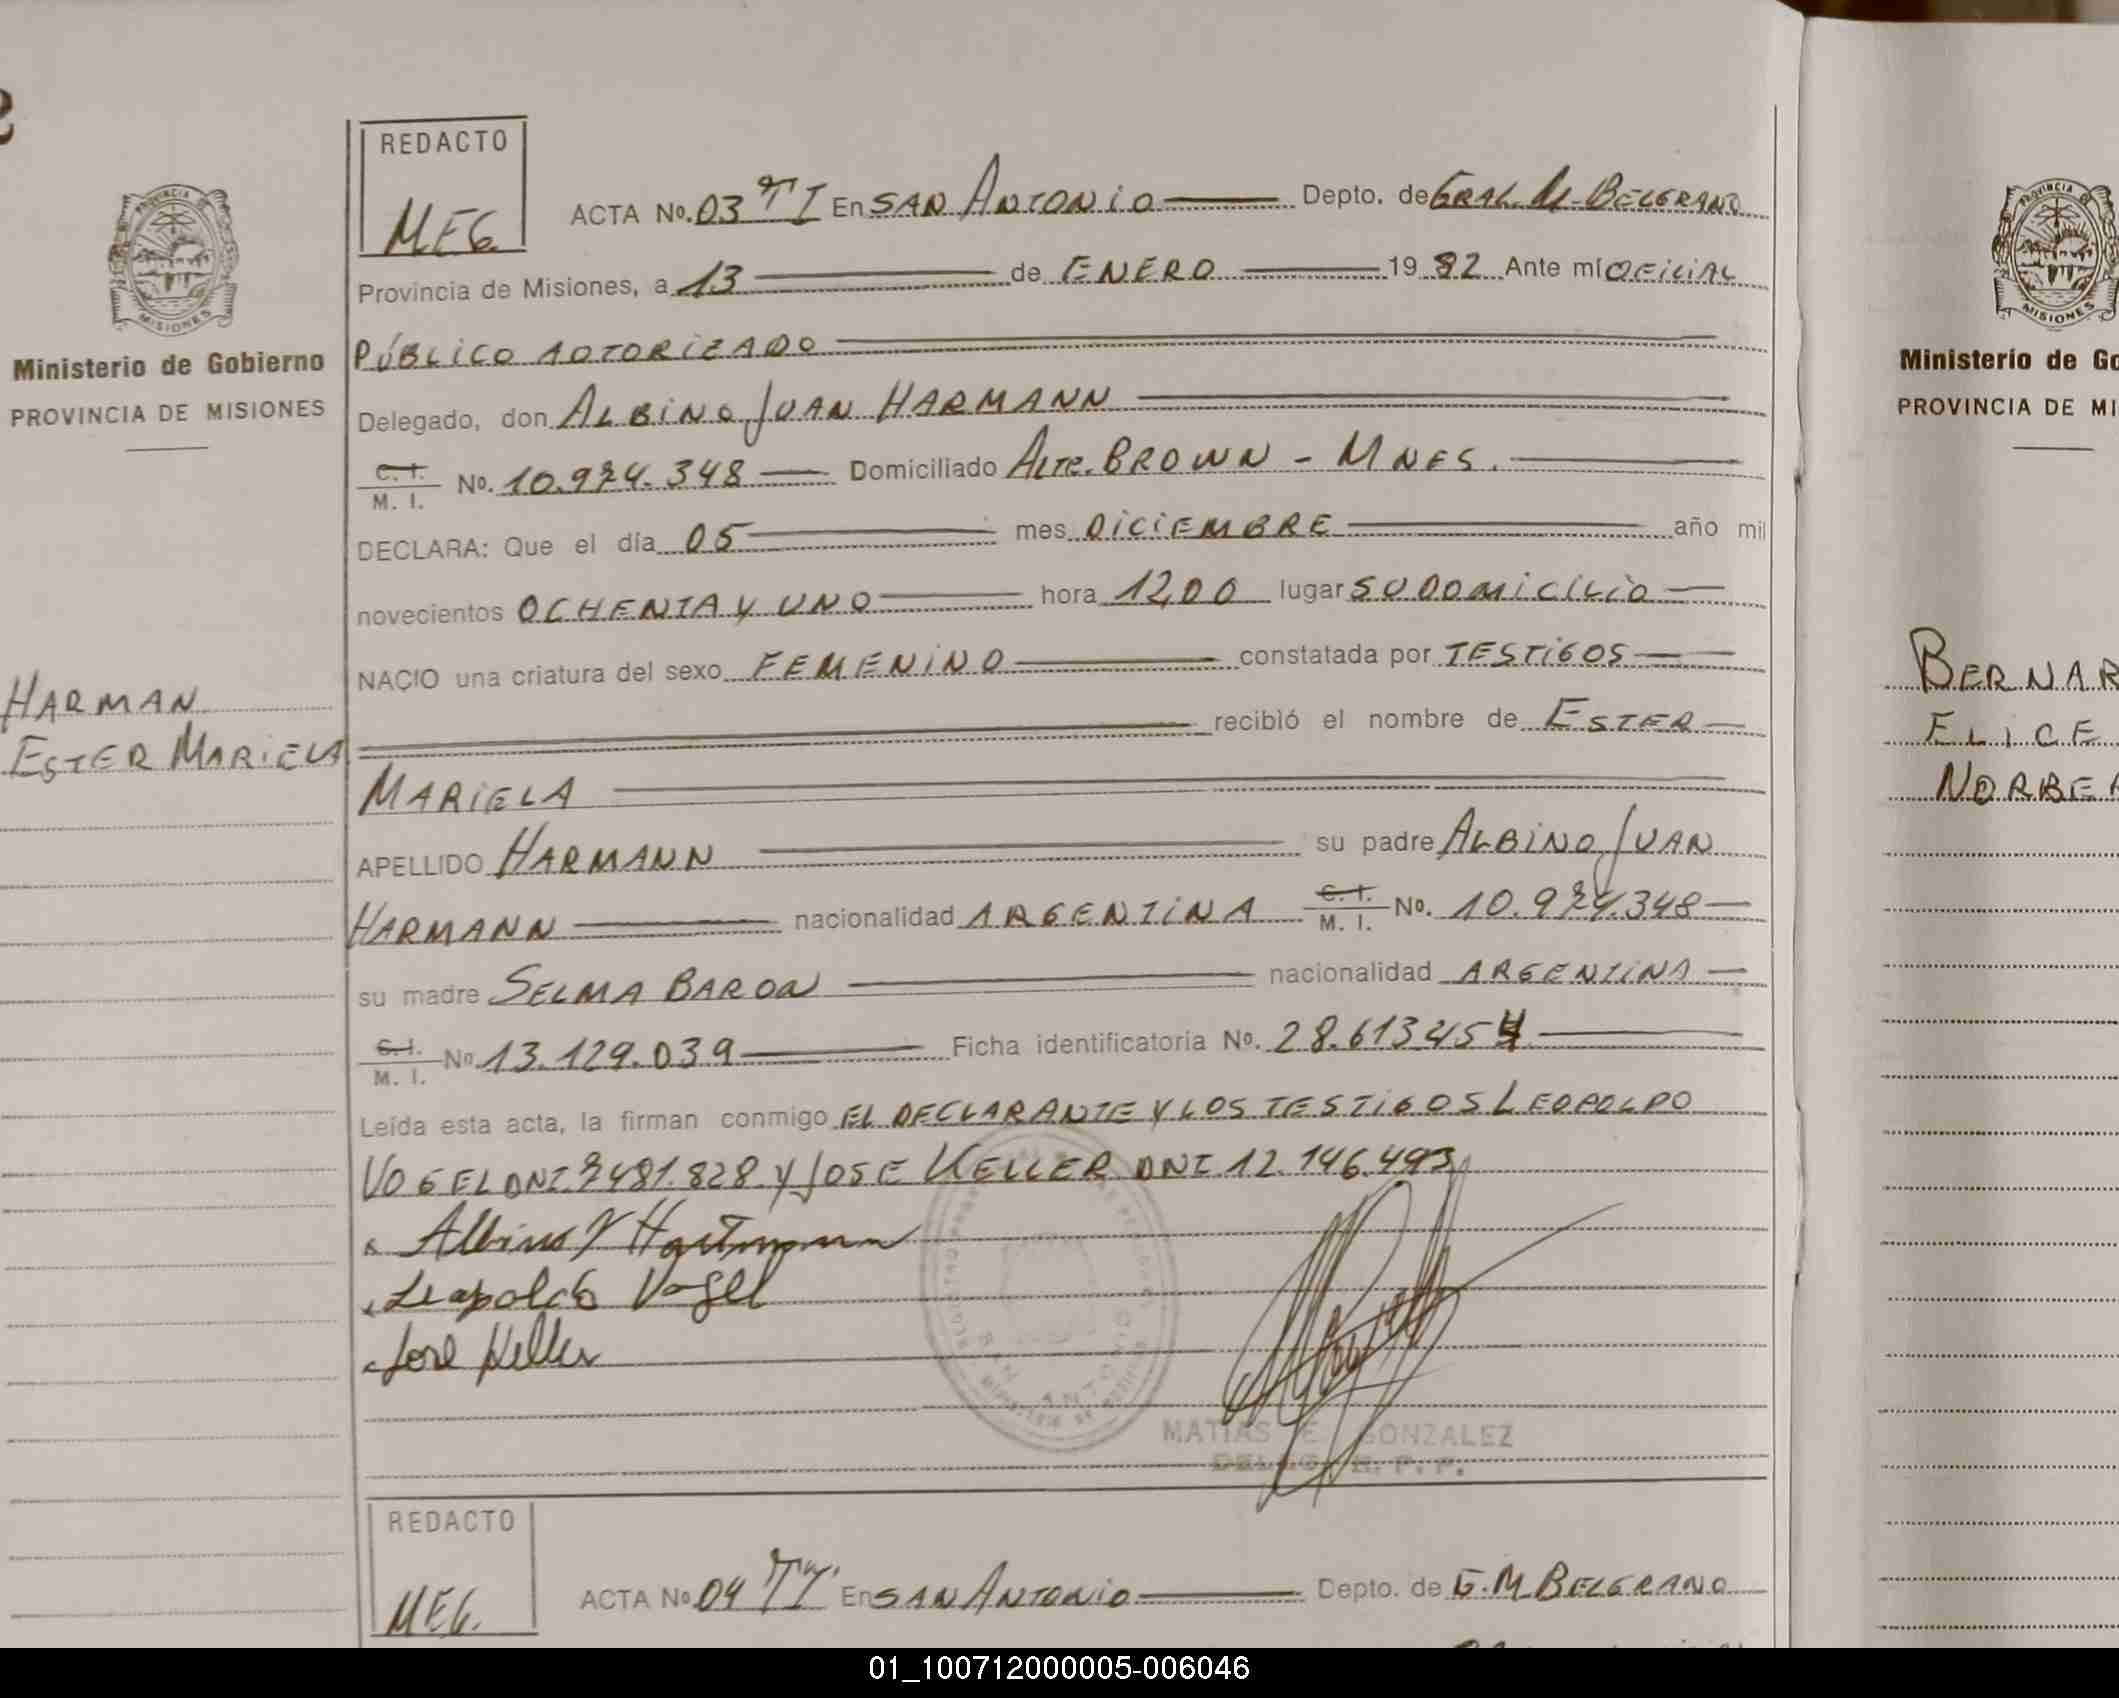 REDACTO
MEG.
ACTA No. 03 TI En SAN ANTONIO Depto. de GRAL. M. BELGRANO
Provincia de Misiones, a 13 de ENERO 19 82 Ante mí OFICIAL
PÚBLICO AUTORIZADO
Delegado, don ALBINO JUAN HARMANN
C. I.
M. I. No. 10.974.348 Domiciliado ALTE. BROWN - MNES.
DECLARA: Que el día 05 mes DICIEMBRE año mil
novecientos OCHENTA Y UNO hora 12,00 lugar SU DOMICILIO
NACIO una criatura del sexo FEMENINO constatada por TESTIGOS
recibió el nombre de ESTER
MARIELA
APELLIDO HARMANN su padre ALBINO JUAN
HARMANN nacionalidad ARGENTINA C. I.
M. I. No. 10.974.348
su madre SELMA BARON nacionalidad ARGENTINA
C. I.
M. I. No 13.129.039 Ficha identificatoria No. 28.613.454
Leída esta acta, la firman conmigo EL DECLARANTE Y LOS TESTIGOS LEOPOLDO
VOGEL DNI 7481.828 Y JOSE KELLER DNI 12.146.493
Albino J Hartmann
Leopoldo Vogel
Jose Keller
SAN ANTONIO
MATIAS E. GONZALEZ
DELEG. R. P. P.
REDACTO
MEG.
ACTA No 04 TI En SAN ANTONIO Depto. de G. M. BELGRANO
PROVINCIA DE
MISIONES
Ministerio de Gobierno
PROVINCIA DE MISIONES
HARMAN
ESTER MARIELA
PROVINCIA DE
MISIONES
Ministerio de Go
PROVINCIA DE MI
BERNAR
FLICE
NORBER
01_100712000005-006046